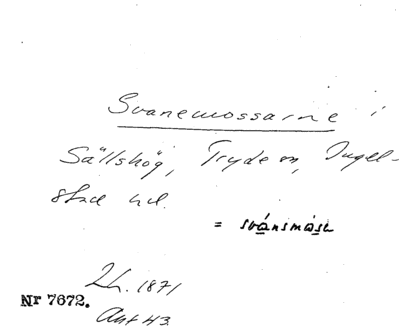 Svanemossarne i
Sällshög, Tryde sn, Ingel-
stad hd.
= svánsmåsa
Lh. 1871
Nr 7672.
Akt 43